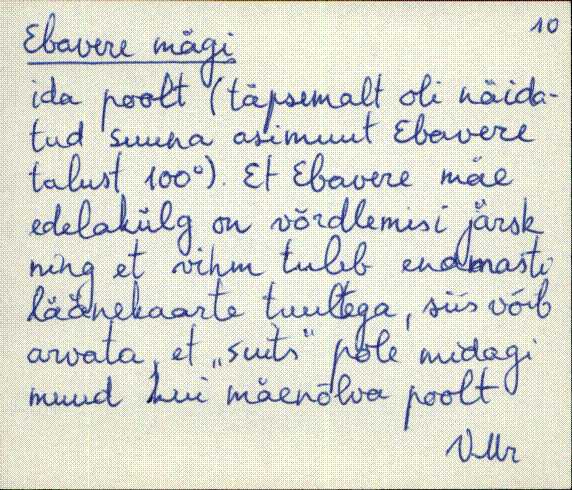 10
Ebavere mägi
ida poolt (täpsemalt oli näida-
tud suuna asimuut Ebavere
talust 100°). Et Ebavere mäe
edelakülg on võrdlemisi järsk
ning et vihm tuleb enamasti
läänekaarte tuultega, siis võib
arvata, et „suits“ pole midagi
muud kui mäenõlva poolt